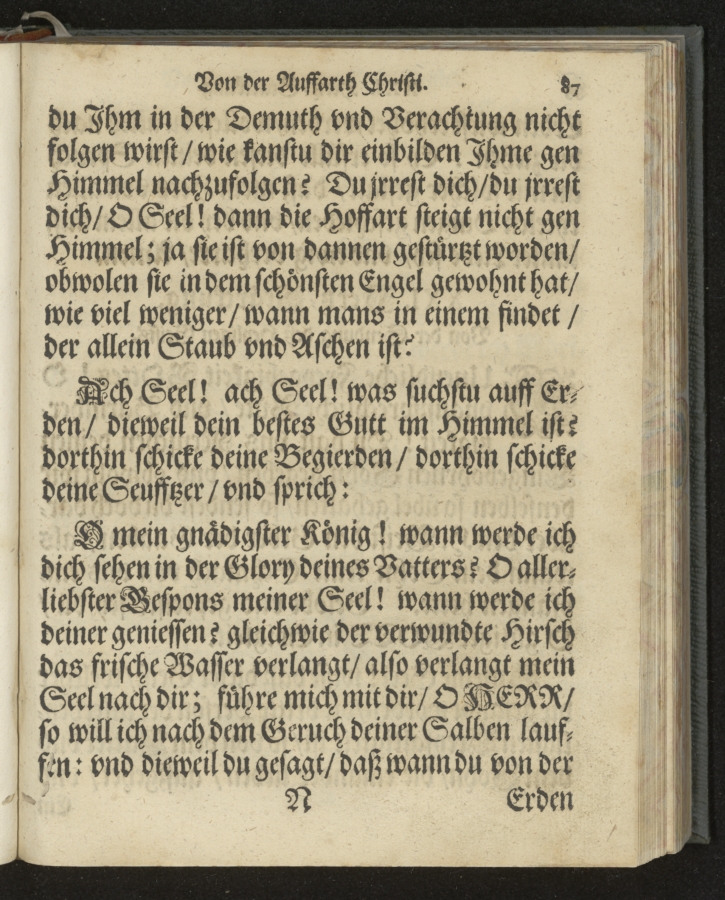 Von der Auffarth Christi. 87
du Ihm in der Demuth vnd Verachtung nicht
folgen wirst / wie kanstu dir einbilden Ihme gen
Himmel nachzufolgen? Du jrrest dich/du jrrest
dich/ O Seel! dann die Hoffart steigt nicht gen
Himmel; ja sie ist von dannen gestürtzt worden/
obwolen sie in dem schönsten Engel gewohnt hat/
wie viel weniger/ wann mans in einem findet /
der allein Staub vnd Aschen ist?
Ach Seel! ach Seel! was suchstu auff Er-
den/ dieweil dein bestes Gutt im Himmel ist?
dorthin schicke deine Begierden / dorthin schicke
deine Seufftzer / vnd sprich:
O mein gnädigster König! wann werde ich
dich sehen in der Glory deines Vatters? O aller-
liebster Gespons meiner Seel! wann werde ich
deiner geniessen? gleichwie der verwundte Hirsch
das frische Wasser verlangt/ also verlangt mein
Seel nach dir; führe mich mit dir/ O HERR/
so will ich nach dem Geruch deiner Salben lauf-
fen: vnd dieweil du gesagt/ daß wann du von der
N Erden